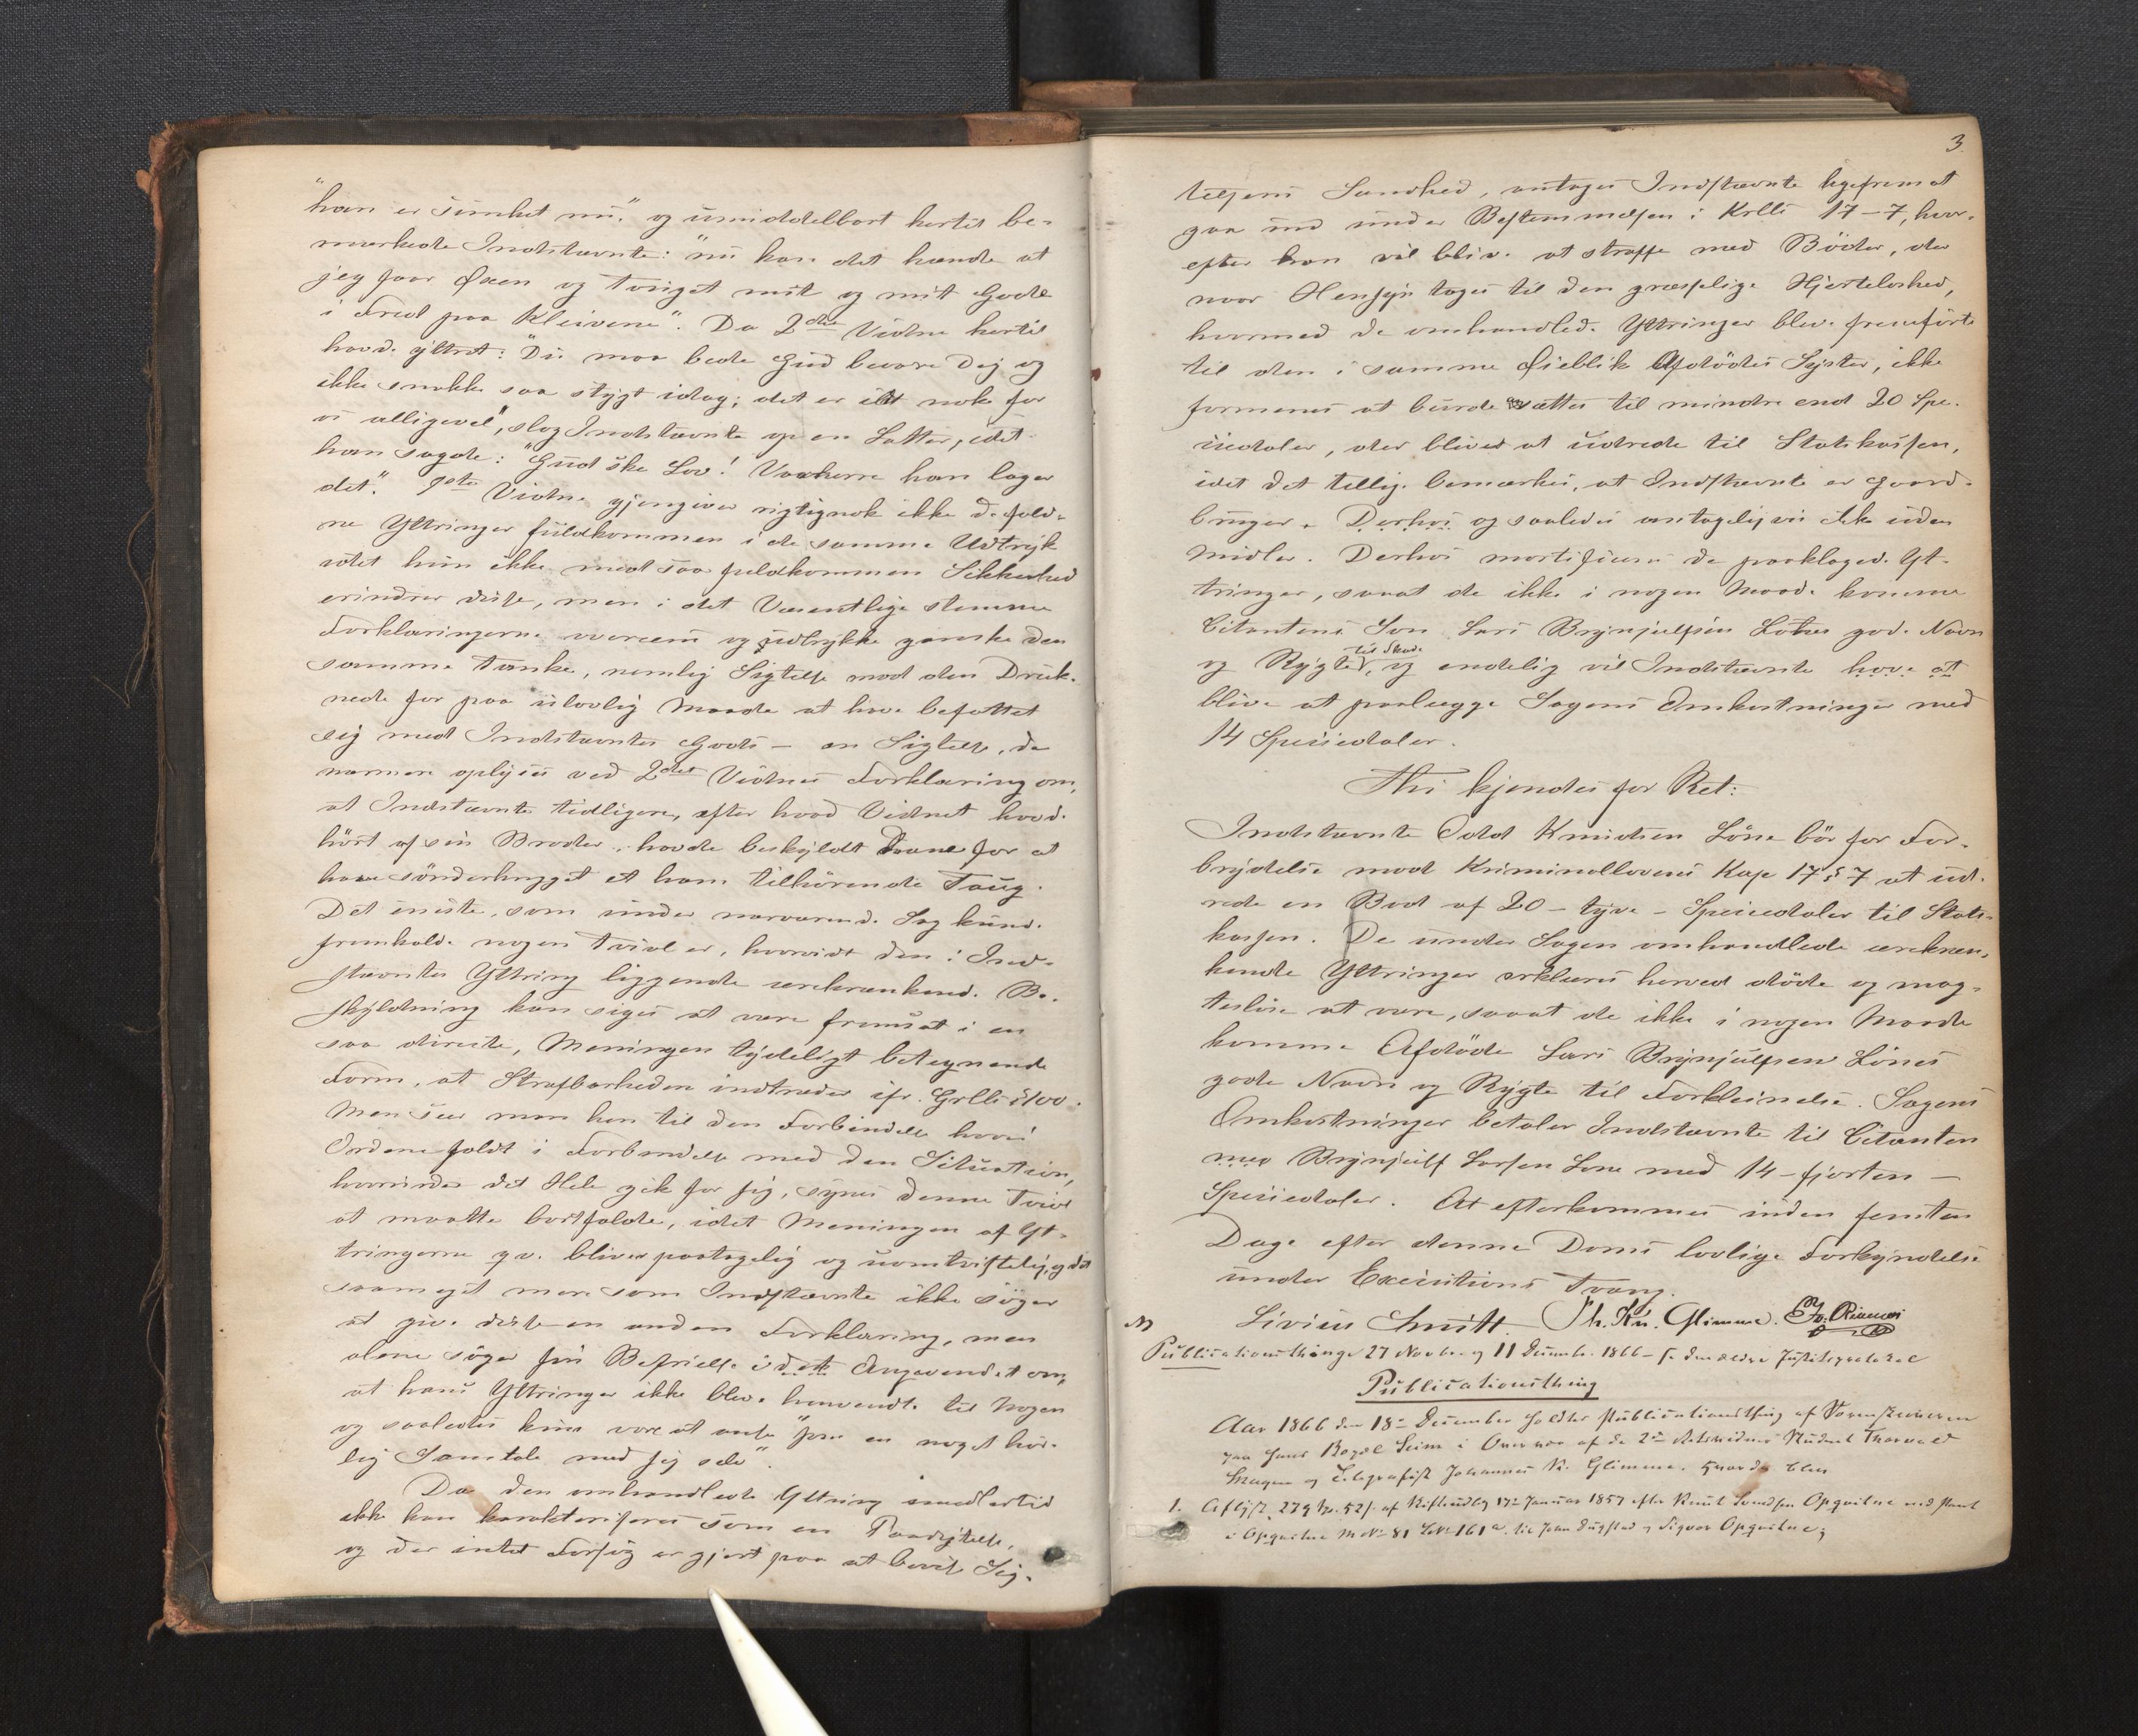 "han er sunket nu." og umiddelbart hertil be-
mærkede Indstævnte: "nu kan det hænde at
jeg faar Øxen og Touget mit og mit Gods
i Fred paa Kleivene". Da 2det Vidne hertil
havde yttret: "Du maa bede Gud bevare Dig og
ikke snakke saa stygt idag; det er ildt nok for
os alligevel", slog Indstævnte op en Latter, idet
han sagde: "Gud ske Lov! Vorherre han lager
det." 1ste Vidne gjengiver rigtignok ikke de fald-
ne Yttringer fuldkommen i de samme Udtryk
idet hun ikke med saa fuldkommen Sikkerhed
erindrer disse, men i det Væsentlige stemme
Forklaringerne overeens og udtrykke ganske den
samme Tanke, nemlig Sigtelse mod den Druk-
nede for paa ulovlig Maade at have befattet
sig med Indstævntes Gods – en Sigtelse, der
nærmere oplyses ved 2det Vidnes Forklaring om,
at Indstævnte tidligere, efter hvad Vidnet havde
hørt af sin Broder, havde beskyldt Denne for at
have sönderhugget et ham tilhørende Toug.
Det eneste, som under nærværende Sag kunde
fremkalde nogen Tvivl er, hvorvidt den i Ind-
stævntes Yttring liggende ærekrænkende Be-
skyldning kan siges at være fremsat i en
saa directe, Meningen tydeligt betegnende
Form, at Strafbarheden indtræder cfr. Grlls § 100.
Men seer man hen til den Forbindelse hvori
Ordene faldt i Forbindelse med den Situation,
hvorunder det Hele gik for sig, synes denne Tvivl
at maatte bortfalde, idet Meningen af Yt-
tringerne qv. bliver paatagelig og uomtvistelig, og det
saameget mere som Indstævnte ikke søger
at give disse en anden Forklaring, men
alene søger sin Befrielse i dette Angivendet om,
at hans Yttringer ikke bleve henvendte til Nogen
og saaledes kun vare at anse "som en noget hør-
lig Samtale med sig selv".
Da den omhandlede Yttring imidlertid
ikke kan karakteriseres som en Paadigtelse,
og der intet Forsøg er gjort paa at bevise Sig-
3
telsens Sandhed, antages Indstævnte ligefrem at
gaa ind under Bestemmelsen i Krlls 17-7, hvor-
efter han vil blive at straffe med Bøder, der
naar Hensyn tages til den græsselige Hjerteløshed,
hvormed de omhandlede Yttringer bleve fremførte
til den i samme Øieblik Afdødes Syster, ikke
formenes at burde sættes til mindre end 20 Spe-
ciedaler, der bliver at udrede til Statskassen,
idet det tillige bemærkes, at Indstævnte er Gaard-
bruger. Derhos og saaledes antageligviis ikke uden
Midler. Derhos mortificeres de paaklagede Yt-
tringer, saaat de ikke i nogen Maade komme
Citantens Søn Lars Brynjulfsen Lønes gode Navn
og Rygte til Skade, og endelig vil Indstævnte have at
blive at paalægge Sagens Omkostninger med
14 Speciedaler.
Thi kjendes for Ret:
Indstævnte Odd Knudsen Løne bør for For-
brydelse mod Kriminallovens Kap 17 § 7 at ud-
rede en Bod af 20 – tyve – Speciedaler til Stats-
kassen. De under Sagen omhandlede ærekræn-
kende Yttringer erklæres herved døde og mag-
tesløse at være, saaat de ikke i nogen Maade
komme Afdøde Lars Brynjulfsen Lønes
gode Navn og Rygte til Forkleinelse. Sagens
Omkostninger betaler Indstævnte til Citanten
med Brynjulf Larsen Løne med 14 – fjorten –
Speciedaler. At efterkommes inden femten
Dage efter denne Doms lovlige Forkyndelse
under Executions Tvang.
Livius Smitt. Joh. Kn. Glimme.
Publicationsthinge 27 Novbr. og 11 December 1866 – se den ældre Justitsprotocol
Publicationsthing
Aar 1866 den 18de December holdtes Publicationsthing af Sorenskriveren
paa hans Bopæl Seim i Overvær af de 2de Retsvidner Student Thorvald
og Telegrafist Johannes K. Glimme. Hvorda blev
1. Aflyst 279 Sp. 52 s. af Skifteudlæg 17de Januar 1857 efter Knut Svendsen Opqvitne med Pant
i Opqvitne M.No 81 L.No 161a. til John Dugstad og Sigvor Opqvitne;